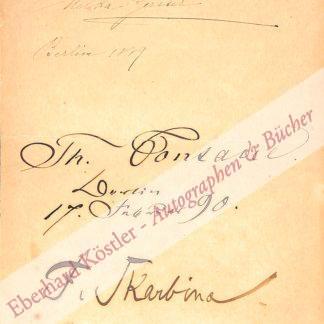 Berlin 1889
Th. Fontane.
Berlin
17. Februar 90.
F. Skarbina
Eberhard Köstler - Autographen & Bücher